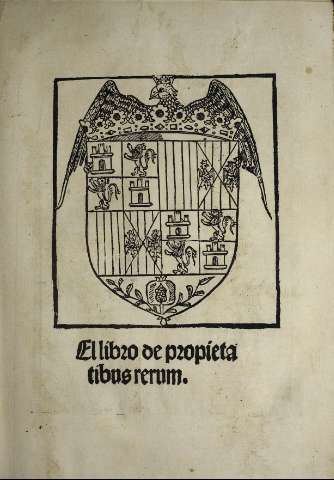 El libro de propieta
tibus rerum.